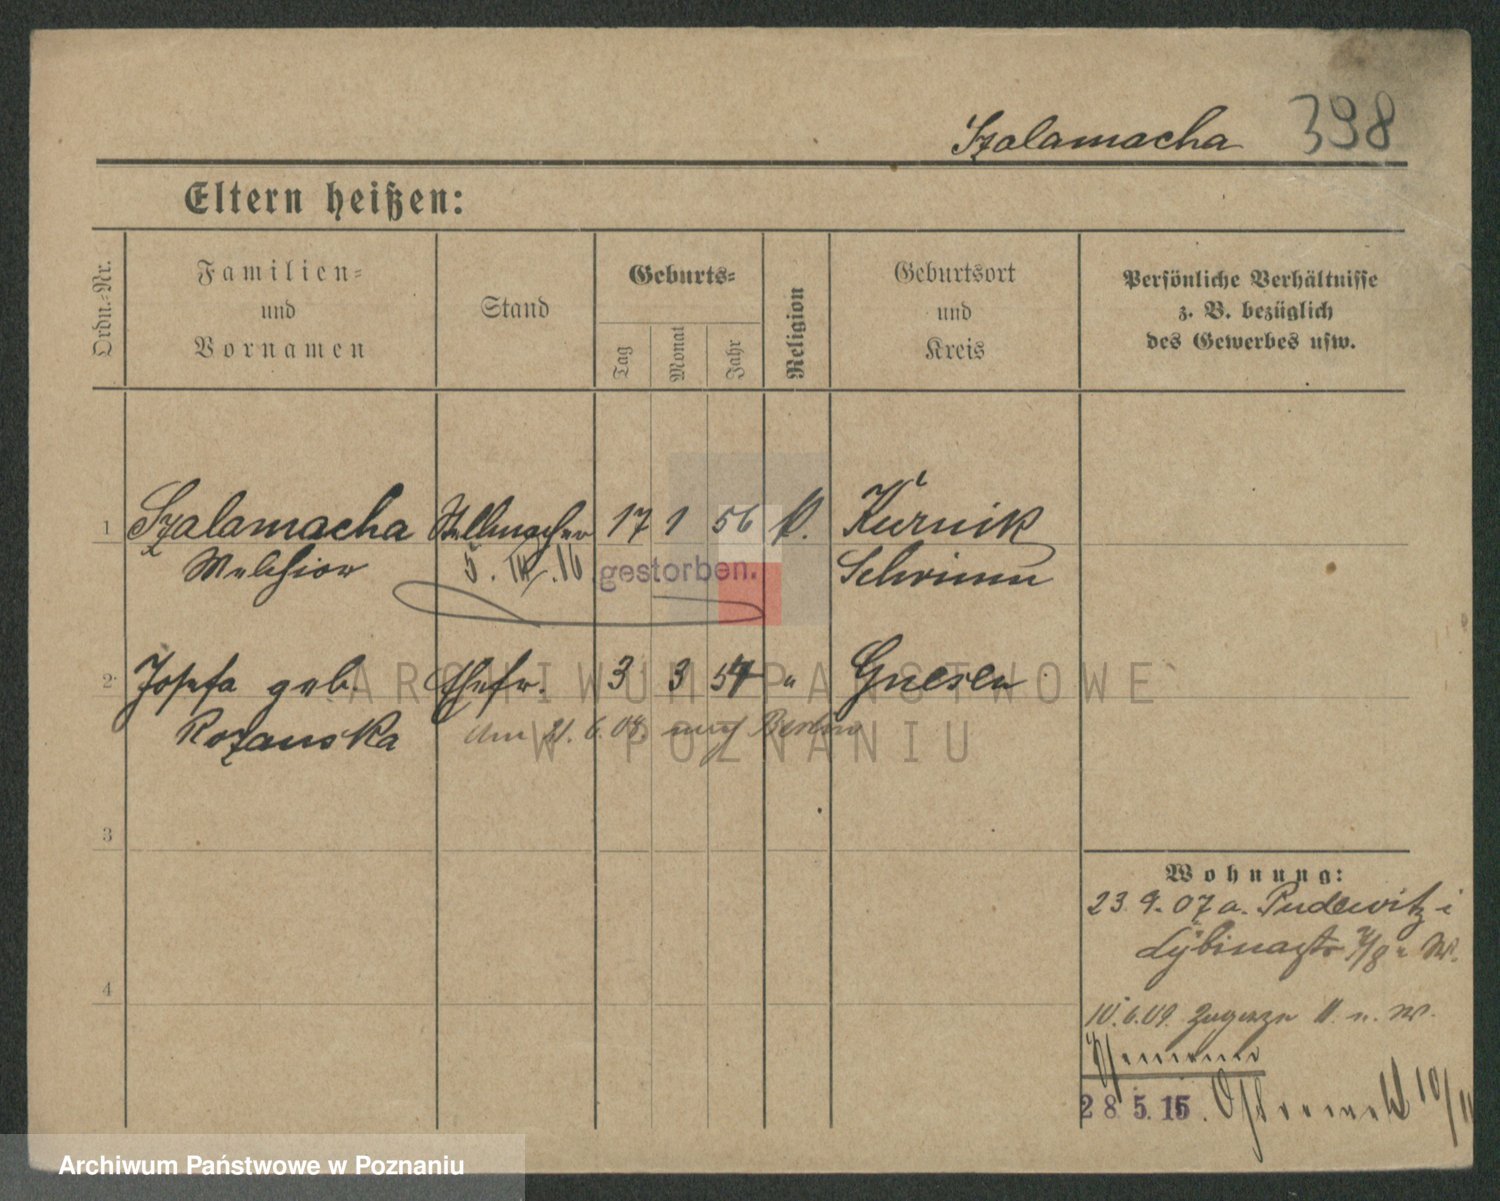 Szalamacha 398
Eltern heißen:
Ordn.-Nr.
Familien-
und
Vornamen
Stand
Geburts-
Tag
Monat
Jahr
Religion
Geburtsort
und
Kreis
Persönliche Verhältnisse
z. B. bezüglich
des Gewerbes usw.
1 Szalamacha Stellmacher 17 1 56 k. Kurnik
Melchior 5. IV. 16 gestorben. Schrimm
2 Josefa geb. Ehefr. 3 3 54 " Gnesen
Rozanska Am 21.6.09. nach Berlin
3
4
Wohnung:
23.9.07 a. Pudewitz i
W.
10.6.09. 11 n. W.
28.5.15. 10/11
ARCHIWUM PAŃSTWOWE
W POZNANIU
Archiwum Państwowe w Poznaniu